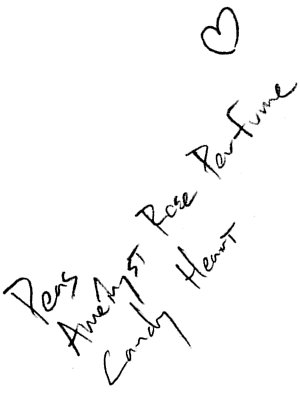 Peas
Amethyst Rose Perfume
Candy Heart